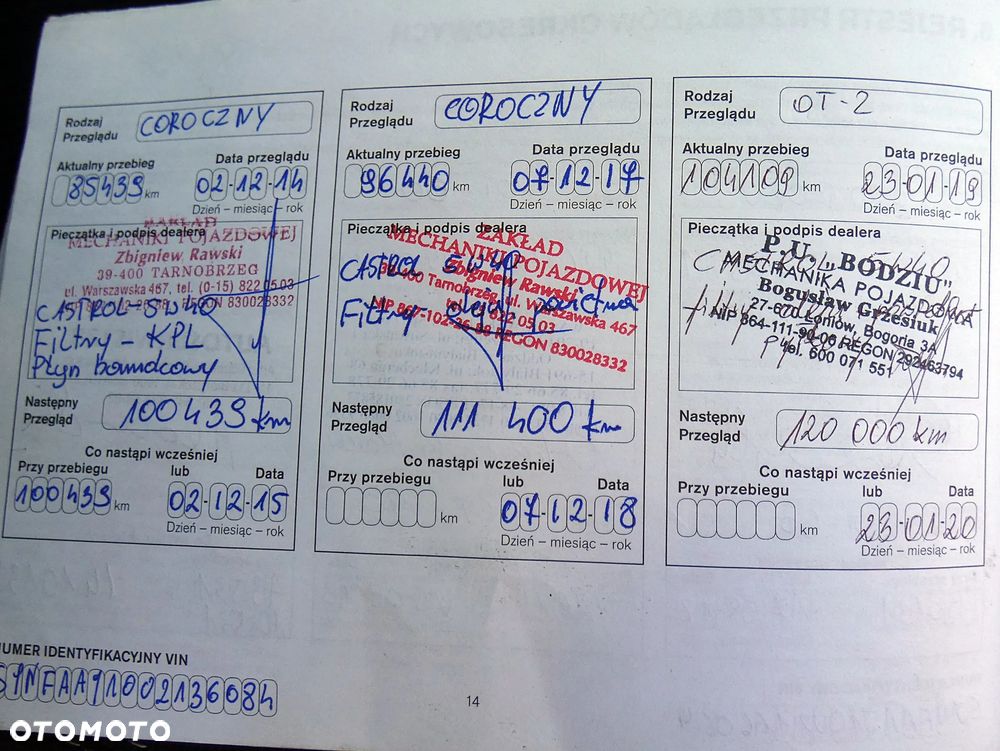 Rodzaj Przeglądu
COROCZNY
Aktualny przebieg
85439 km
Data przeglądu
02-12-14
Dzień – miesiąc – rok
Pieczątka i podpis dealera
ZAKŁAD
MECHANIKI POJAZDOWEJ
Zbigniew Rawski
39-400 TARNOBRZEG
ul. Warszawska 467, tel. (0-15) 822 05 03
REGON 830028332
CASTROL-5W40
Filtry - KPL
Płyn
Następny Przegląd
100439 km
Co nastąpi wcześniej
Przy przebiegu
lub
Data
100439 km
02-12-15
Dzień – miesiąc – rok
Rodzaj Przeglądu
COROCZNY
Aktualny przebieg
96440 km
Data przeglądu
07-12-17
Dzień – miesiąc – rok
Pieczątka i podpis dealera
ZAKŁAD
MECHANIKI POJAZDOWEJ
Zbigniew Rawski
39-400 Tarnobrzeg, ul. Warszawska 467
822 05 03
NIP 867-102-26-88 REGON 830028332
CASTROL 5W40
Filtry oleju, powietrza
Następny Przegląd
111 400 km
Co nastąpi wcześniej
Przy przebiegu
lub
Data
km
07-12-18
Dzień – miesiąc – rok
Rodzaj Przeglądu
OT-2
Aktualny przebieg
104109 km
Data przeglądu
23-01-19
Dzień – miesiąc – rok
Pieczątka i podpis dealera
P.U. „BODZIU”
MECHANIKA POJAZDOWA
Bogusław Grzesiuk
27-670 Łoniów, Bogoria 3A
NIP 864-111-90-06 REGON 292463794
tel. 600 071 551
5W40
Następny Przegląd
120 000 km
Co nastąpi wcześniej
Przy przebiegu
lub
Data
km
23-01-20
Dzień – miesiąc – rok
NUMER IDENTYFIKACYJNY VIN
SJNFAAJ10U2136084
14
OTOMOTO